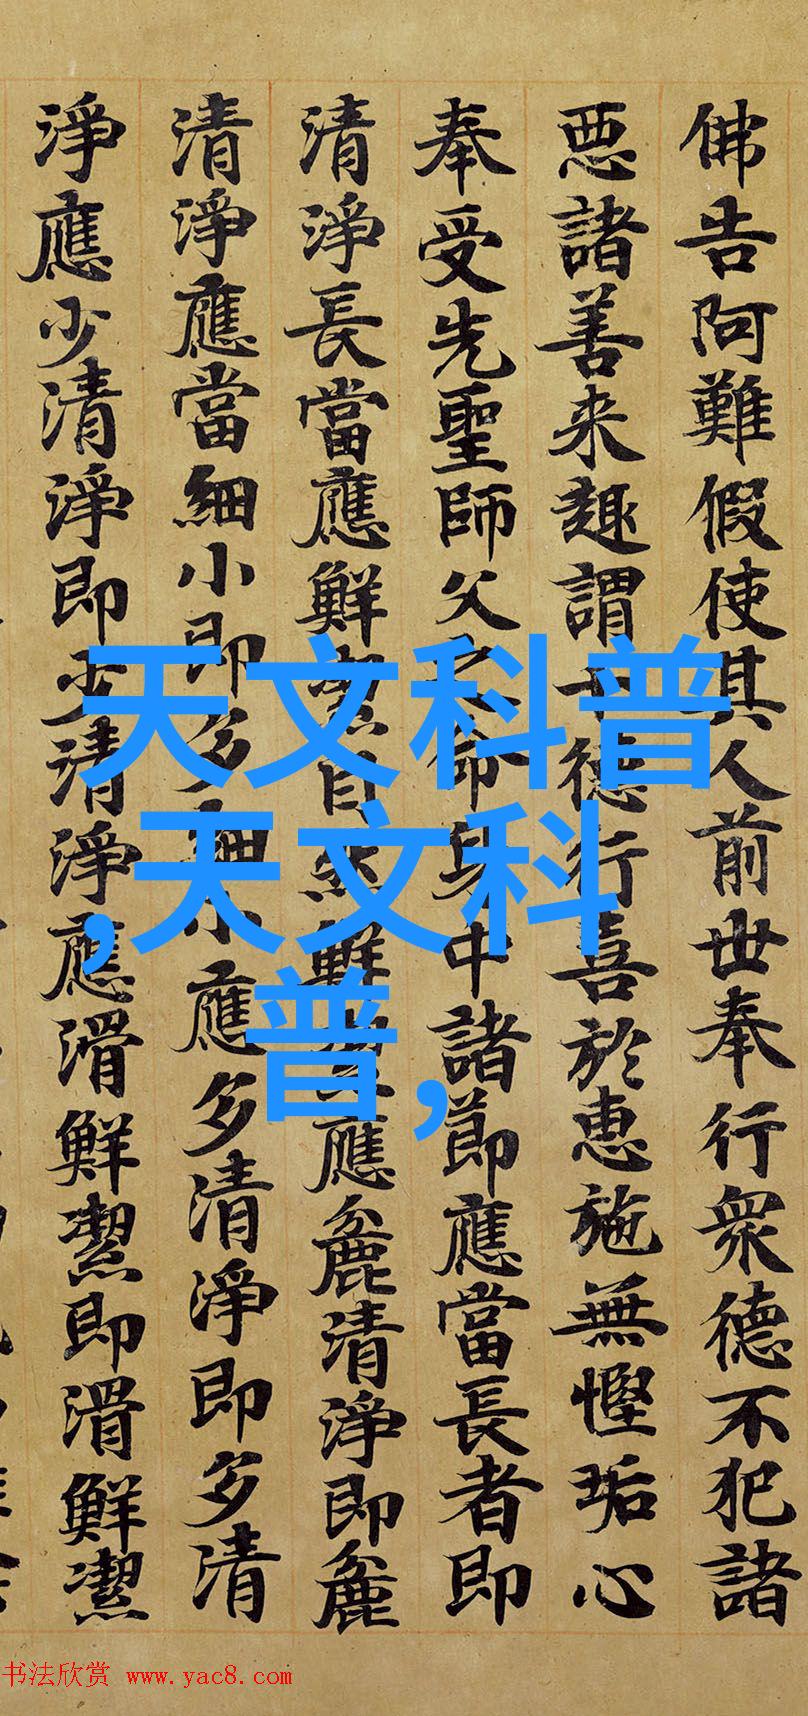 佛告阿難假使其人前世奉行衆德不犯諸
悪諸善来趣謂十德行喜於惠施無慳垢心
奉受先聖師父之命身中諸節應當長者即
清淨長當應鮮潔自然鮮潔應麁清淨即麁
清淨應當細小即多細小應多清淨即多清
淨應少清淨即少清淨應滑鮮潔即滑鮮潔
天文科普
,天文科
普,
书法欣赏 www.yac8.com